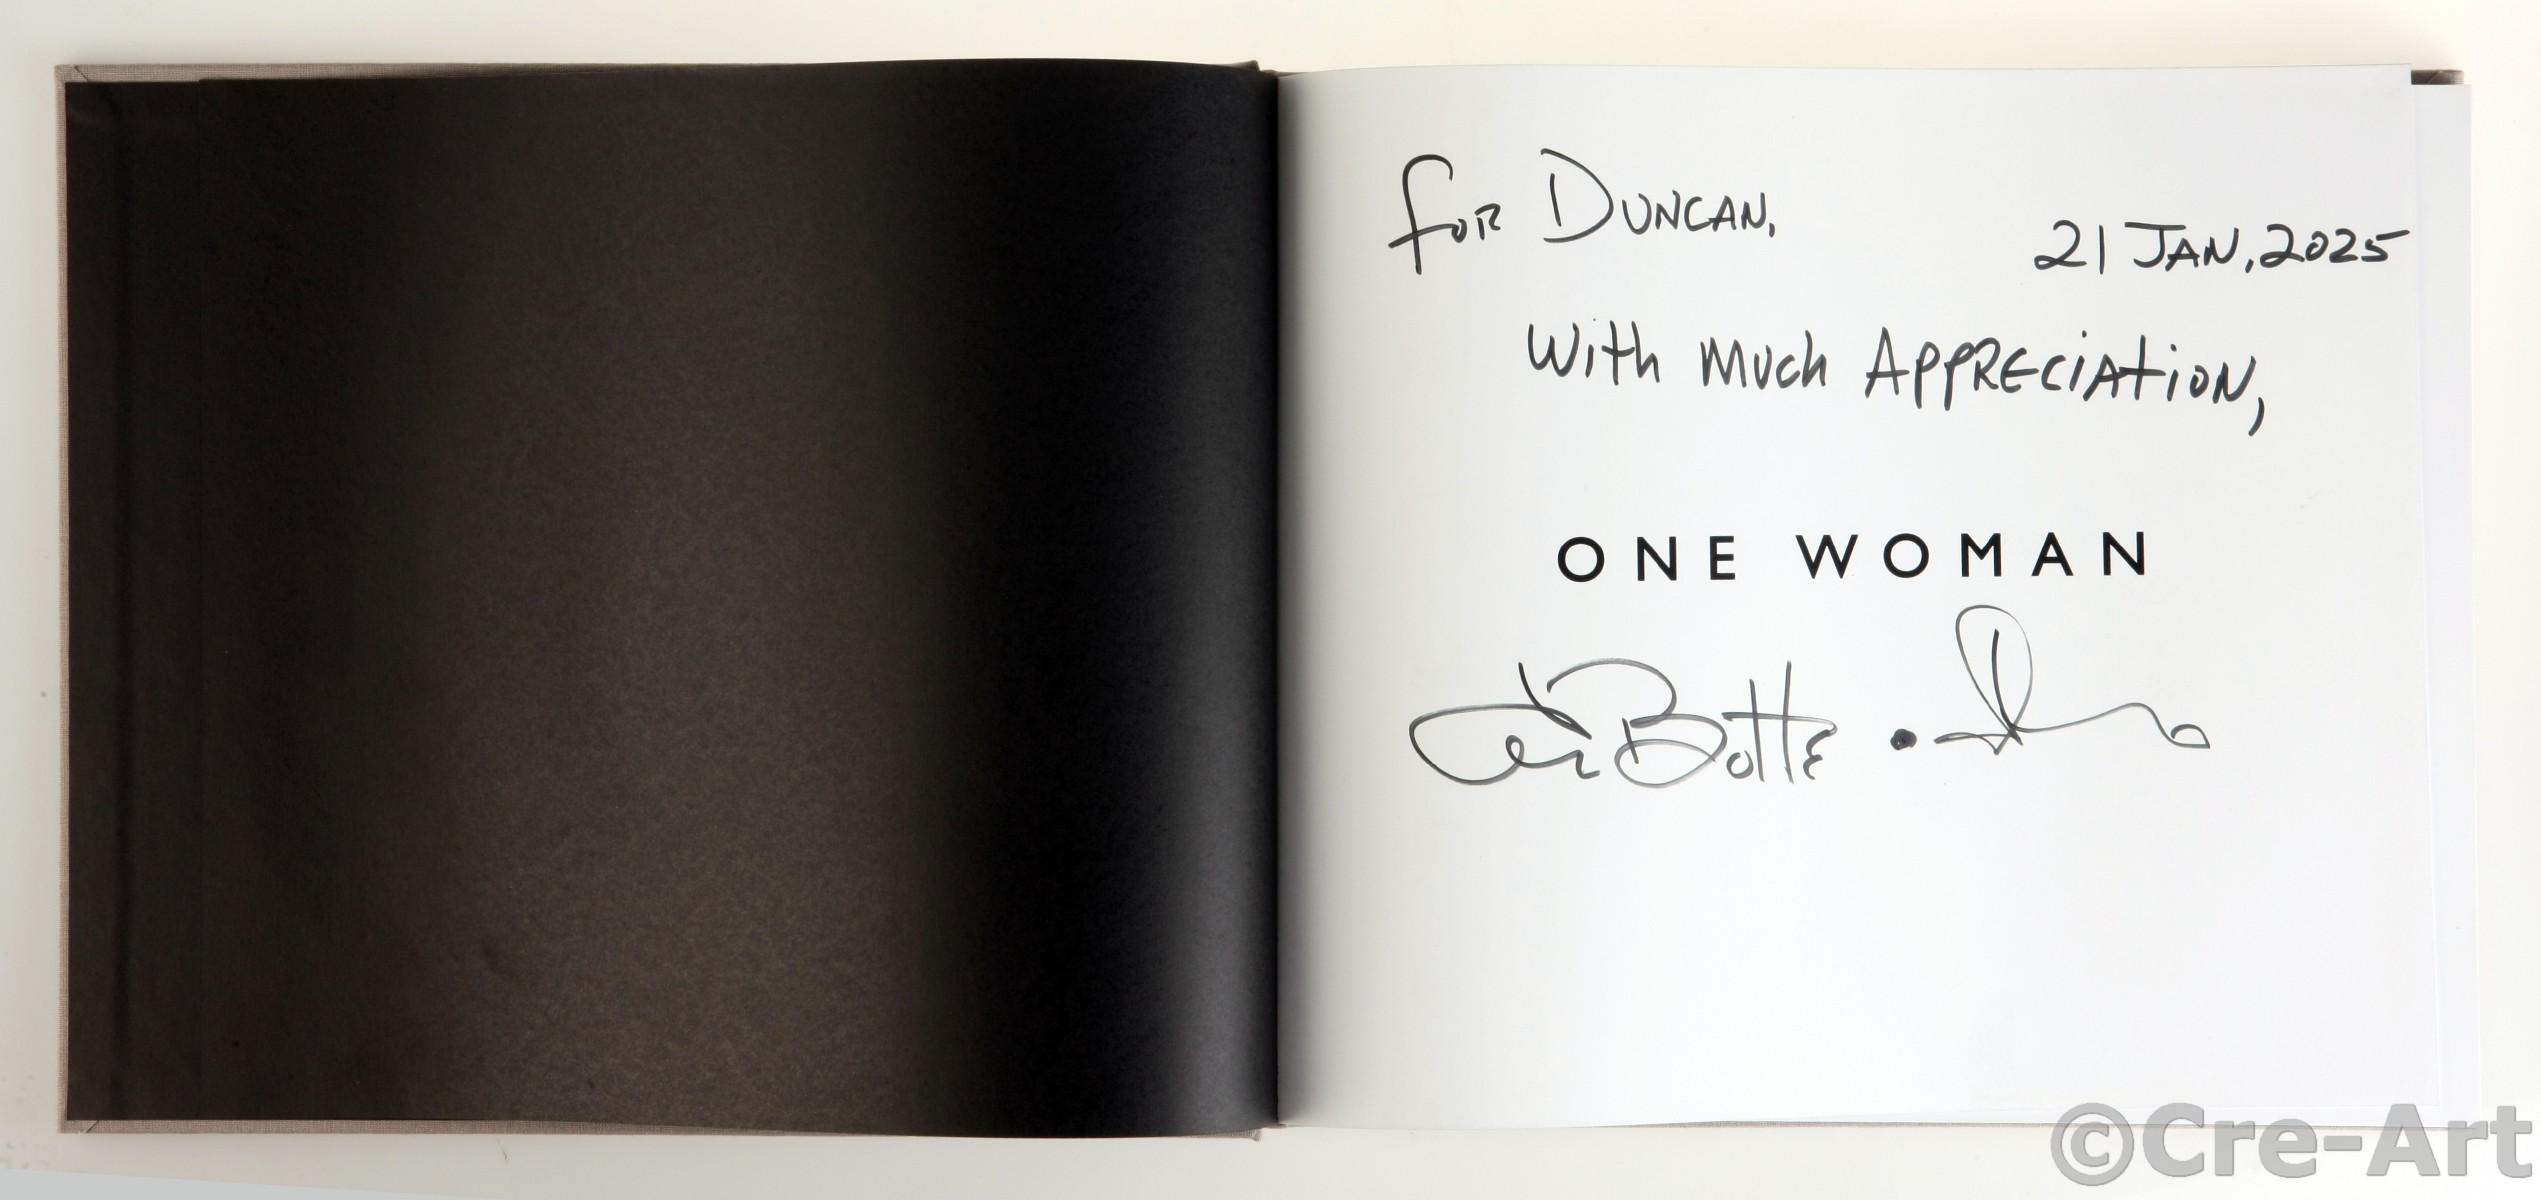 For Duncan,
21 Jan, 2025
With Much Appreciation,
ONE WOMAN
©Cre-Art